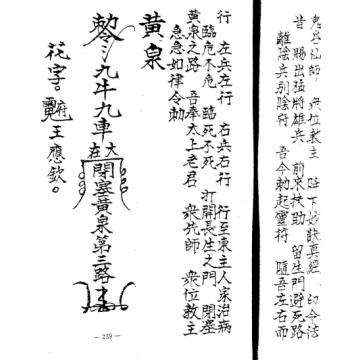 仙師 眾位教主 妙訣真經 令法
旨 賜出強將雄兵 前來扶助 留生門避死路
離陰兵別陰府 吾今勅起靈符 隨吾左右而
行 左兵左行 右兵右行 行至東主人家治病
臨危不危 臨死不死 打開長生之門 閉塞
黃泉之路 吾奉太上老君 眾先師 眾位教主
急急如律令勅
黃泉
勅令 九牛九車 大在 閉塞黃泉第三路
花字。 王應欽。
— 259 —